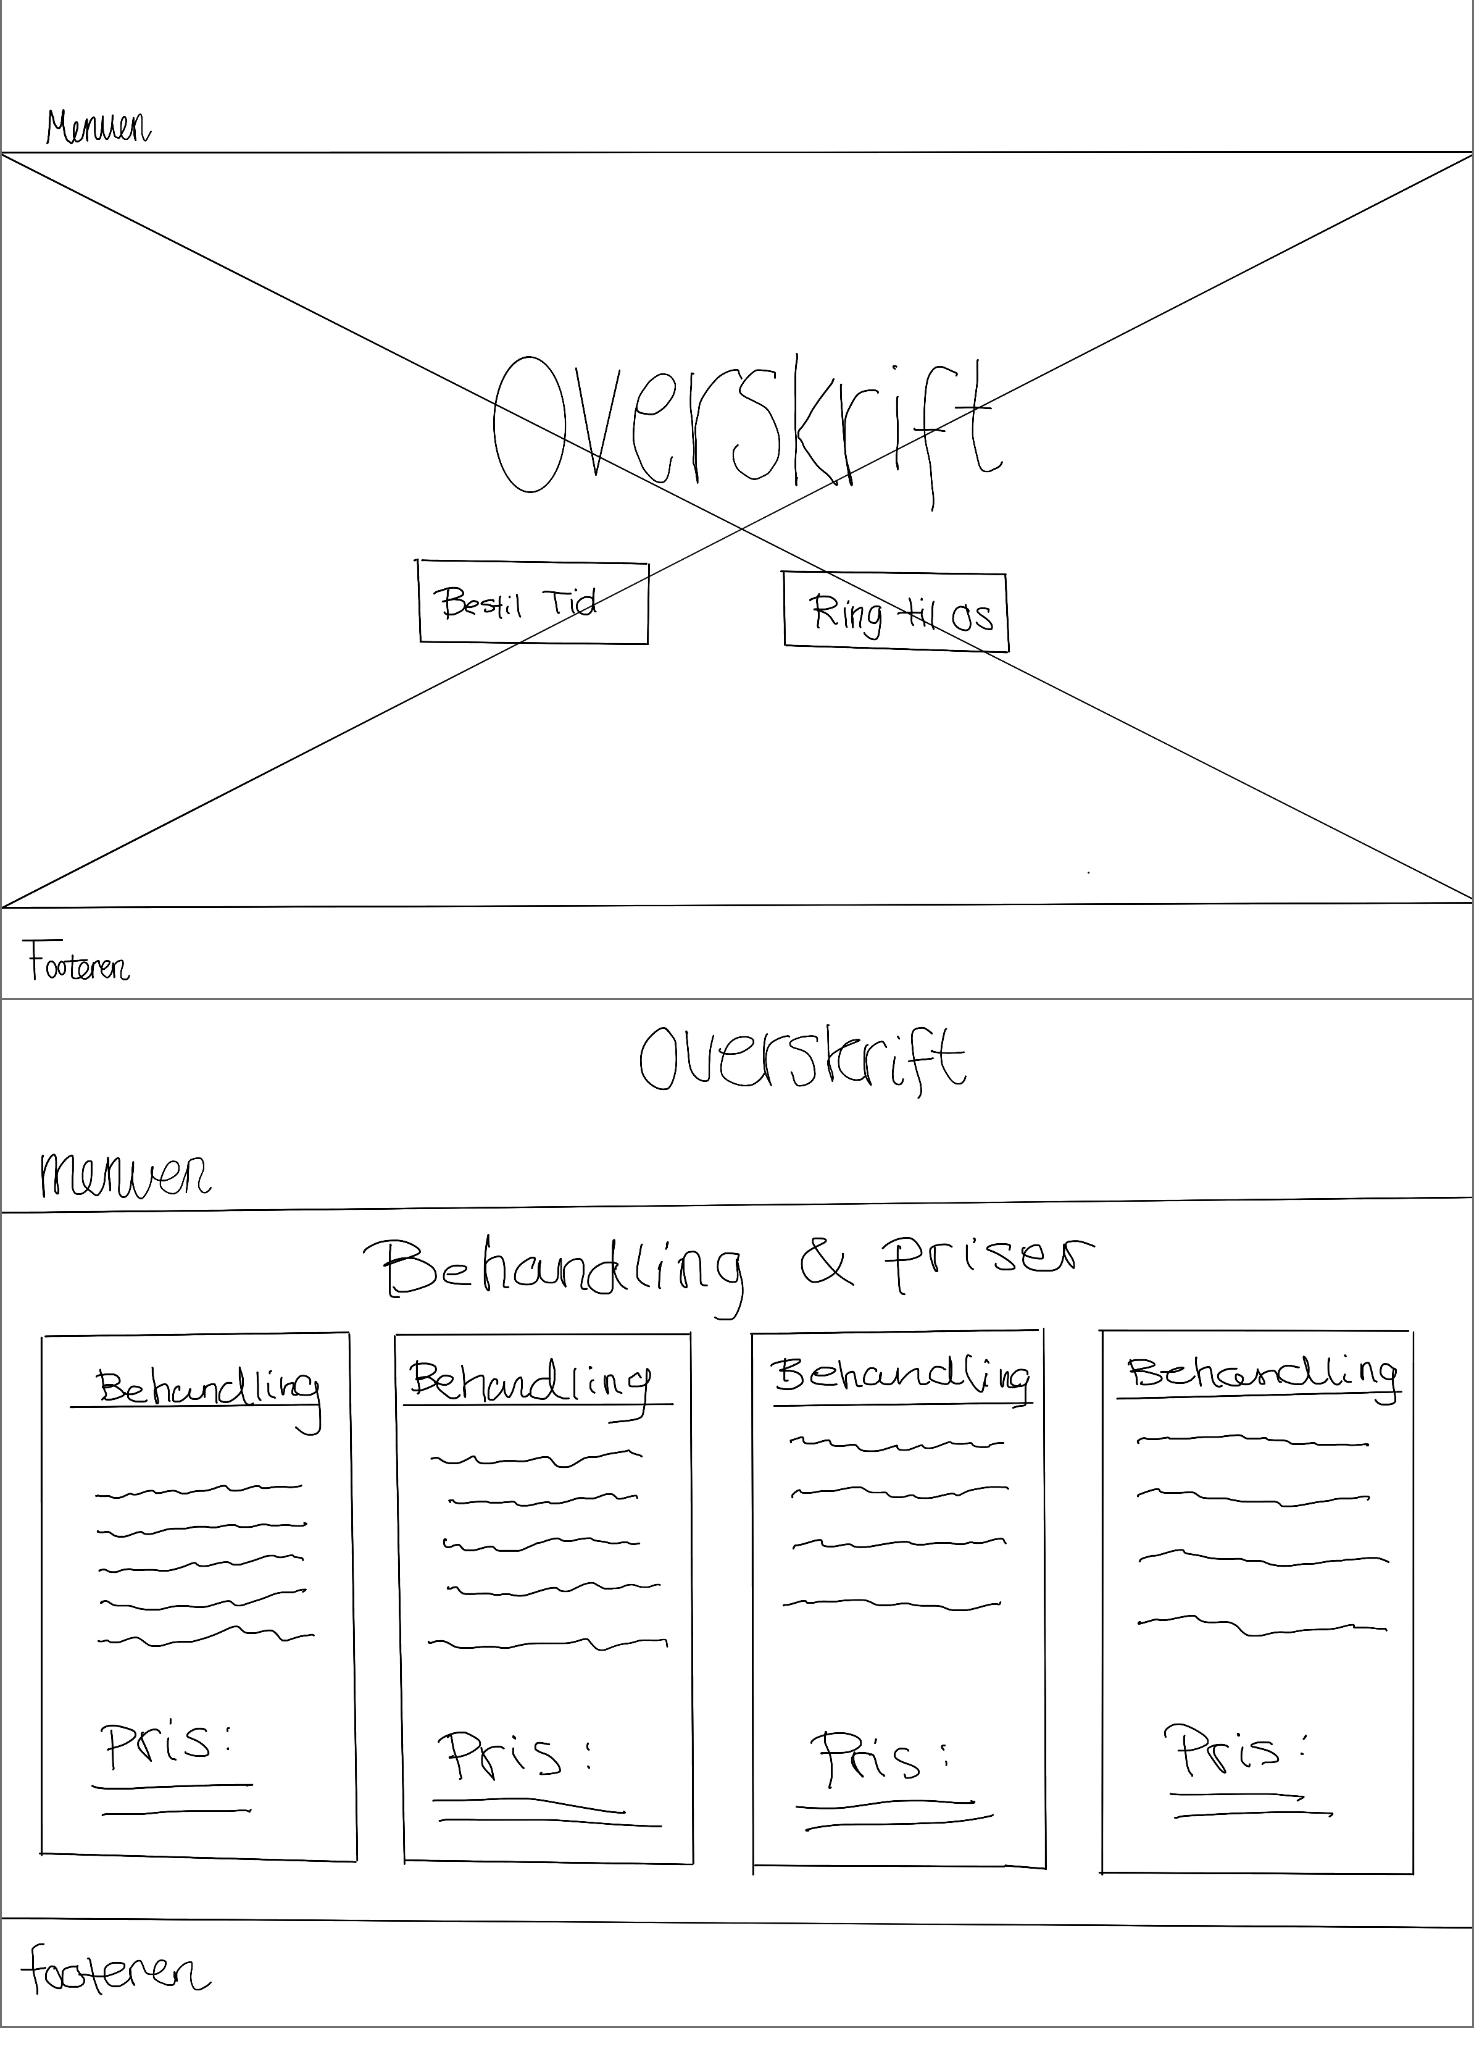 Menuen
Overskrift
Bestil Tid
Ring til os
Footeren
Overskrift
menuen
Behandling & priser
Behandling
Behandling
Behandling
Behandling
Pris:
Pris:
Pris:
Pris:
footeren